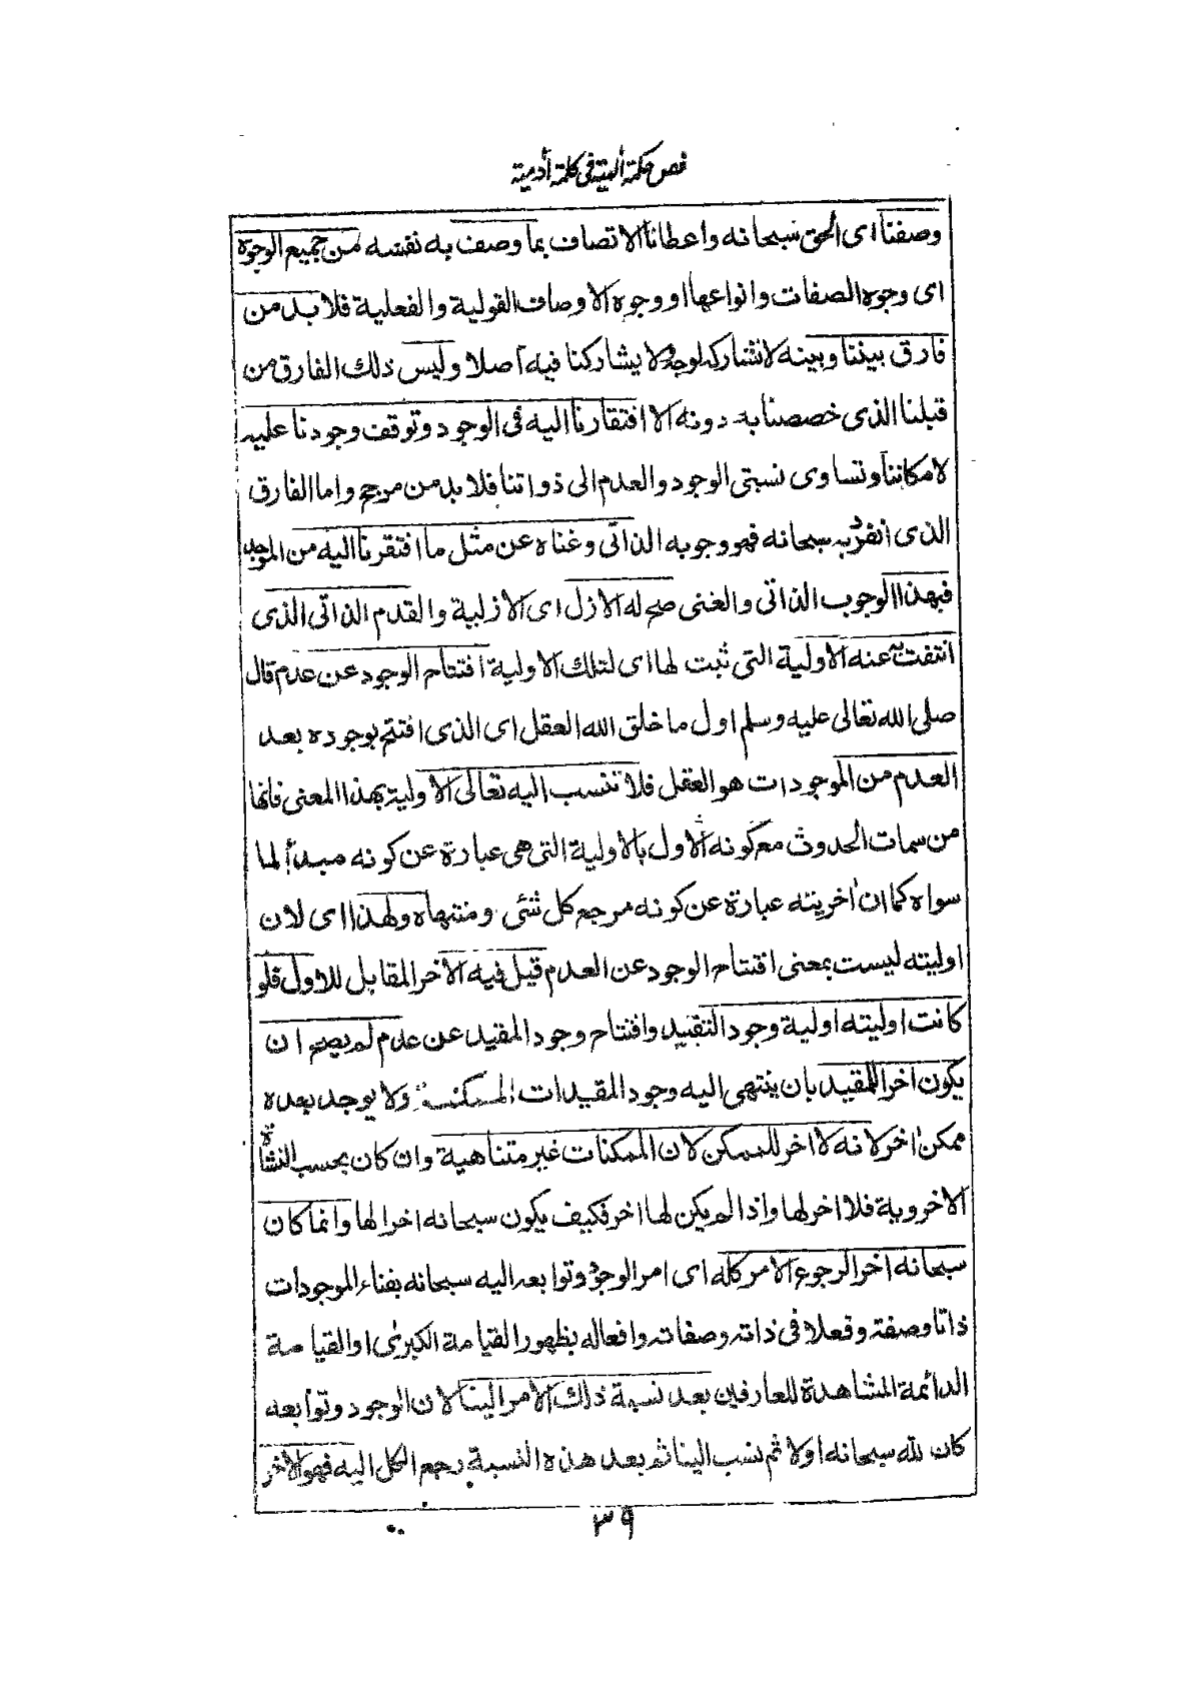 فص حكمة ألهية فى كلمة أدمية
وصفنا اى الحق سبحانه واعطانا الاتصاف بما وصف به نفسه من جميع الوجوه
اى وجوه الصفات وانواعها او وجوه الاوصاف القولية والفعلية فلا بد من
فارق بيننا وبينه لا نشاركه لوجه ولا يشاركنا فيه أصلا وليس ذلك الفارق من
قبلنا الذى خصصنا به دونه الا افتقارنا اليه فى الوجود وتوقف وجودنا عليه
لامكاننا وتساوى نسبتى الوجود والعدم الى ذواتنا فلا بد من مرجح واما الفارق
الذى انفرد به سبحانه فهو وجوبه الذاتى وغناه عن مثل ما افتقرنا اليه من الموجد
فبهذا الوجوب الذاتى والغنى صح له الازل اى الازلية والقدم الذاتى الذى
انتفت به عنه الاولية التى ثبت لها اى لتلك الاولية افتتاح الوجود عن عدم قال
صلى الله تعالى عليه وسلم اول ما خلق الله العقل اى الذى افتتح بوجوده بعد
العدم من الموجودات هو العقل فلا تنسب اليه تعالى الاولية بهذا المعنى فانها
من سمات الحدوث مع كونه الاول بالاولية التى هى عبارة عن كونه مبدأ لما
سواه كما ان أخريته عبارة عن كونه مرجع كل شئى ومنتهاه ولهذا اى لان
اوليته ليست بمعنى افتتاح الوجود عن العدم قيل فيه الأخر المقابل للاول فلو
كانت اوليته اولية وجود التقييد وافتتاح وجود المقيد عن عدم لم يصح ان
يكون اخرا للمقيد بان ينتهى اليه وجود المقيدات الممكنة ولا يوجد بعده
ممكن اخر لانه لا اخر للممكن لان الممكنات غير متناهية وان كان بحسب النشأة
الاخروية فلا اخر لها واذا لم يكن لها اخر فكيف يكون سبحانه اخرا لها وانما كان
سبحانه اخرا لرجوع الامر كله اى امر الوجود وتوابعه اليه سبحانه بفناء الموجودات
ذاتا وصفة وفعلا فى ذاته وصفاته وافعاله بظهور القيامة الكبرى او القيامة
الدائمة المشاهدة للعارفين بعد نسبة ذلك الامر الينا لان الوجود وتوابعه
كان لله سبحانه اولا ثم نسب الينا ثم بعد هذه النسبة رجع الكل اليه فهو الاخر
٣٩